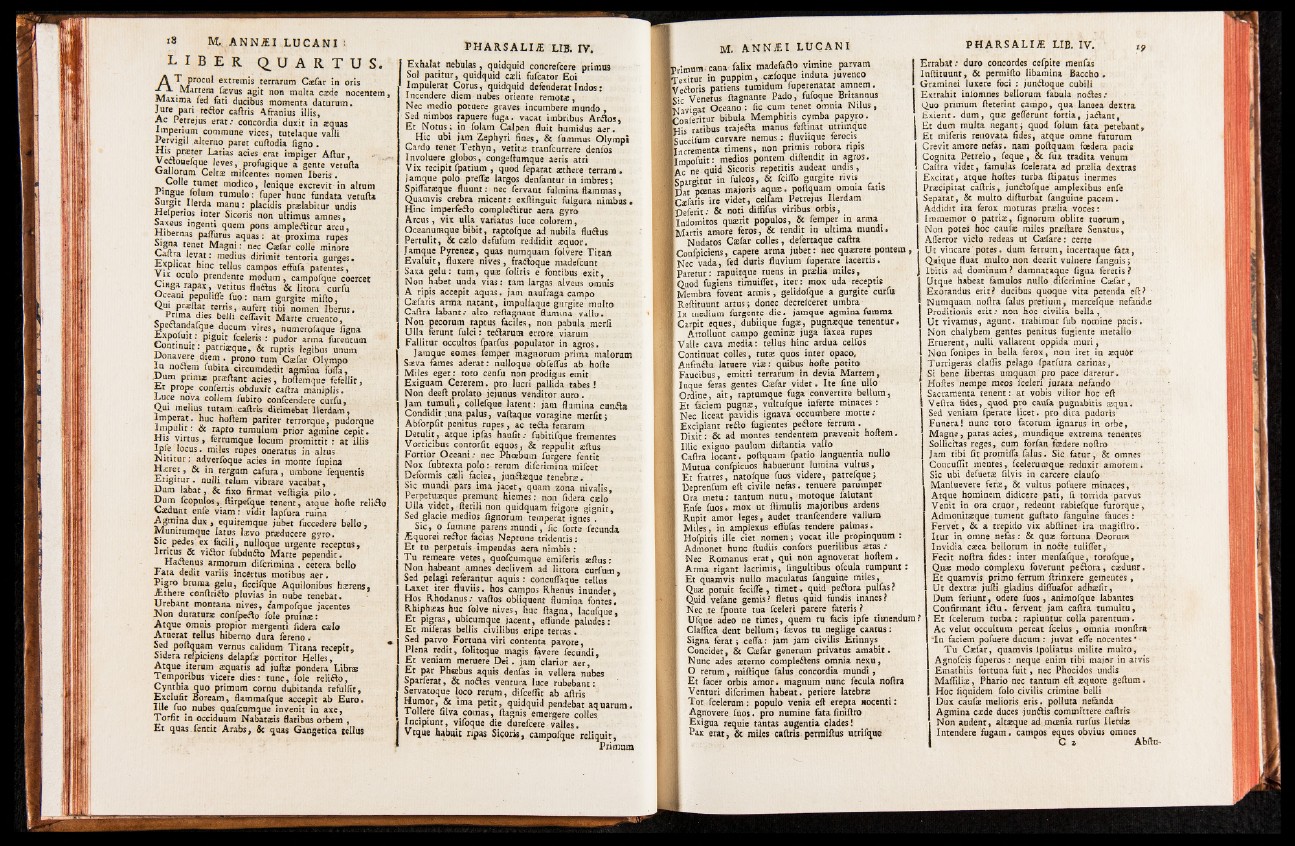 18 M. ANNÆI LUCANI
LIBER QUARTUS.
AT procul extremis terrarum Cæſar in oris
Martem ſævus agit non multa cæde nocentem,
Maxima ſed fati ducibus momenta daturum.
Jure pari rector caſtris Afranius illis,
Ac Petrejus erat: concordia duxit in æquas
Imperium commune vices, tutelaque valli
Pervigil alterno paret cuſtodia ſigno.
His præter Latias acies erat impiger Aſtur,
Vectoueſque leves, profugique a gente vetuſta
Gallorum Celtæ miſcentes nomen Iberis.
Colle tumet modico, lenique excrevit in altum
Pingue ſolum tumulo: ſuper hunc fundata vetuſta
Surgit Ilerda manu: placidis prælabitur undis
Heſperios inter Sicoris non ultimus amnes,
Saxeus ingenti quem pons amplectitur arcu,
Hibernas paſſurus aquas: at proxima rupes
Signa tenet Magni: nec Cæſar colle minore
Caſtra levat: medius dirimit tentoria gurges.
Explicat hinc tellus campos effuſa patentes,
Vix oculo prendente modum, campoſque coercet
Cinga rapax, vetitus fluctus & litora curſu
Oceani pepuliſſe ſuo: nam gurgite miſto,
Qui præſtat terris, aufert tibi nomen Iberus.
Prima dies belli ceſſavit Marte cruento,
Spectandaſque ducum vires, numeroſaque ſigna
Expoſuit: piguit ſceleris: pudor arma furentum
Continuit: patriæque, & ruptis legibus unum
Donavere diem. prono tum Cæſar Olympo
In noctem ſubita circumdedit agmina foſſa,
Dum primæ præſtant acies, hoſtemque fefellit,
Et prope confertis obduxit caſtra maniplis.
Luce nova collem ſubito conſcendere curſu,
Qui melius tutam caſtris dirimebat Ilerdam,
Imperat. huc hoſtem pariter terrorque, pudorque
Impulit: & rapto tumulum prior agmine cepit.
His virtus, ferrumque locum promittit: at illis
Ipſe locus. miles rupes oneratus in altus
Nititur: adverſoque acies in monte ſupina
Hæret, & in tergum caſura, umbone ſequentis
Erigitur. nulli telum vibrare vacabat,
Dum labat, & fixo firmat veſtigia pilo.
Dum ſcopulos, ſtirpeſque tenent, atque hoſte relicto
Cædunt enſe viam: vidit lapſura ruina
Agmina dux, equitemque jubet ſuccedere bello,
Munitumque latus lævo præducere gyro.
Sic pedes ex facili, nulloque urgente receptus,
Irritus & victor ſubducto Marte pependit.
Hactenus armorum diſcrimina. cetera bello
Fata dedit variis incertus motibus aer.
Pigro bruma gelu, ſiccisque Aquilonibus hærens,
Æthere conſtricto pluvias in nube tenebat.
Urebant montana nives, campoſque jacentes
Non duraturæ conſpecto ſole pruinæ:
Atque omnis propior mergenti ſidera cælo
Aruerat tellus hiberno dura ſereno.
Sed poſtquam vernus calidum Titana recepit,
Sidera reſpiciens delapſæ portitor Helles,
Atque iterum æquatis ad juſtæ pondera Libræ
Temporibus vicere dies: tunc, ſole relicto,
Cynthia quo primum cornu dubitanda refulſit,
Excluſit Boream, flammaſque accepit ab Euro.
Ille ſuo nubes quaſcumque invenit in axe,
Torſit in occiduum Nabatæis flatibus orbem,
Et quas ſentit Arabs, & quas Gangetica tellus
PHARSALIÆ LIB. IV.
Exhalat nebulas, quidquid concreſcere primus
Sol patitur, quidquid cæli fuſcator Eoi
Impulerat Corus, quidquid defenderat Indos:
Incendere diem nubes oriente remotæ,
Nec medio potuere graves incumbere mundo,
Sed nimbos rapuere fuga. vacat imbribus Arctos,
Et Notus: in ſolam Calpen fluit humidus aer.
Hic ubi jam Zephyri fines, & ſummus Olympi
Cardo tenet Tethyn, vetitæ tranſcurrere denſos
Involuere globos, congeſtumque aeris atri
Vix recipit ſpatium, quod ſeparat æthere terram.
Jamque polo preſſæ largos denſantur in imbres;
Spiſſatæque fluunt: nec ſervant fulmina flammas,
Quamvis crebra micent: exſtinguit fulgura nimbus.
Hinc imperfecto complectitur aera gyro
Arcus, vix ulla variatus luce colorem,
Oceanumque bibit, raptoſque ad nubila fluctus
Pertulit, & cælo defuſum reddidit æquor.
Jamque Pyreneæ, quas numquam ſolvere Titan
Evaluit, fluxere nives, fractoque madeſcunt
Saxa gelu: tum, quæ ſolitis e fontibus exit,
Non habet unda vias: tam largas alveus omnis
A ripis accepit aquas. jam naufraga campo
Cæſaris arma natant, impulſaque gurgite multo
Caſtra labant: alto reſtagnant flumina vallo.
Non pecorum raptus faciles, non pabula merſi
Ulla ferunt ſulci: tectarum errore viarum
Fallitur occultos ſparſus populator in agros.
Jamque comes ſemper magnorum prima malorum
Sæva fames aderat: nulloque obſeſſus ab hoſte
Miles eget: toto cenſu non prodigus emit
Exiguam Cererem. pro lucri pallida tabes!
Non deeſt prolato jejunus venditor auro.
Jam tumuli, colleſque latent: jam flumina cuncta
Condidit una palus, vaſtaque voragine merſit;
Abſorpſit penitus rupes, ac tecta ferarum
Detulit, atque ipſas hauſit: ſubitiſque frementes
Vorticibus contorſit equos, & reppulit æſtus
Fortior Oceani: nec Phœbum ſurgere ſentit
Nox ſubtexta polo: rerum diſcrimina miſcet
Deformis cæli facies, junctæque tenebræ.
Sic mundi pars ima jacet, quam zona nivalis,
Perpetuæque premunt hiemes: non ſidera cælo
Ulla videt, ſterili non quidquam frigore gignit,
Sed glacie medios ſignorum temperat ignes.
Sic, o ſumme parens mundi, ſic ſorte ſecunda
Æquorei rector facias Neptune tridentis:
Et tu perpetuis impendas aera nimbis:
Tu remeare vetes, quoſcumque emiſeris æſtus:
Non habeant amnes declivem ad littora curſum,
Sed pelagi referantur aquis: concuſſaque tellus
Laxet iter fluviis. hos campos Rhenus inundet,
Hos Rhodanus: vaſtos obliquent flumina fontes.
Rhiphæas huc ſolve nives, huc ſtagna, lacuſque,
Et pigras, ubicumque jacent, effunde paludes:
Et miſeras bellis civilibus eripe terras.
Sed parvo Fortuna viri contenta pavore,
Plena redit, ſolitoque magis favere ſecundi,
Et veniam meruere Dei. jam clarior aer,
Et par Phœbus aquis denſas in vellera nubes
Sparſerat, & noctes ventura luce rubebant:
Servatoque loco rerum, diſceſſit ab aſtris
Humor, & ima petit, quidquid pendebat aquarum.
Tollere ſilva comas, ſtagnis emergere colles
Incipiunt, viſoque die dureſcere valles.
Vtque habuit ripas Sicoris, campoſque reliquit,
Primum
M. ANNÆI LUCANI
Primum cana ſalix madefacto vimine parvam
Texitur in puppim, cæſoque induta juvenco
Vectoris patiens tumidum ſuperenatat amnem.
Sic Venetus ſtagnante Pado, fuſoque Britannus
Navigat Oceano: ſic cum tenet omnia Nilus,
Conſeritur bibula Memphitis cymba papyro.
His ratibus trajecta manus feſtinat utrimque
Succiſum curvare nemus: fluviique ferocis
Incrementa timens, non primis robora ripis
Impoſuit: medios pontem diſtendit in agros.
Ac ne quid Sicoris repetitis audeat undis,
Spargitur in ſulcos, & ſciſſo gurgite rivis
Dat pœnas majoris aquæ. poſtquam omnia fatis
Cæſaris ire videt, celſam Petrejus Ilerdam
Deſerit: & noti diffiſus viribus orbis,
Indomitos quærit populos, & ſemper in arma
Martis amore feros, & tendit in ultima mundi.
Nudatos Cæſar colles, deſertaque caſtra
Conſpiciens, capere arma jubet: nec quærere pontem,
Nec vada, ſed duris fluvium ſuperare lacertis.
Paretur: rapuitque ruens in prælia miles,
Quod fugiens timuiſſet, iter: mox uda receptis
Membra fovent armis, gelidoſque a gurgite curſu
Reſtituunt artus; donec decreſceret umbra
In medium ſurgente die. jamque agmina ſumma
Carpit eques, dubiique fugæ, pugnæque tenentur.
Attollunt campo geminæ juga ſaxea rupes
Valle cava media: tellus hinc ardua celſos
Continuat colles, tutæ quos inter opaco,
Anfractu latuere viæ: quibus hoſte potito
Faucibus, emitti terrarum in devia Martem,
Inque feras gentes Cæſar videt. Ite ſine ullo
Ordine, ait, raptumque fuga convertite bellum,
Et faciem pugnæ, vultuſque inferte minaces:
Nec liceat pavidis ignava occumbere morte:
Excipiant recto fugientes pectore ferrum.
Dixit: & ad montes tendentem prævenit hoſtem.
Illic exiguo paulum diſtantia vallo
Caſtra locant. poſtquam ſpatio languentia nullo
Mutua conſpicuos habuerunt lumina vultus,
Et fratres, natoſque ſuos videre, patreſque;
Deprenſum eſt civile nefas. tenuere parumper
Ora metu: tantum nutu, motoque ſalutant
Enſe ſuos. mox ut ſtimulis majoribus ardens
Rupit amor leges, audet tranſcendere vallum
Miles, in amplexus effuſas tendere palmas.
Hoſpitis ille ciet nomen; vocat ille propinquum:
Admonet hunc ſtudiis conſors puerilibus ætas:
Nec Romanus erat, qui non agnoverat hoſtem.
Arma rigant lacrimis, ſingultibus oſcula rumpunt:
Et quamvis nullo maculatus ſanguine miles,
Quæ potuit feciſſe, timet. quid pectora pulſas?
Quid veſane gemis? fletus quid fundis inanes?
Nec te ſponte tua ſceleri parere fateris?
Uſque adeo ne times, quem tu facis ipſe timendum?
Claſſica dent bellum; ſævos tu neglige cantus:
Signa ferat; ceſſa: jam jam civilis Erinnys
Concidet, & Cæſar generum privatus amabit.
Nunc ades æterno complectens omnia nexu,
O rerum, miſtique ſalus concordia mundi,
Et ſacer orbis amor. magnum nunc ſecula noſtra
Venturi diſcrimen habent. periere latebræ
Tot ſcelerum: populo venia eſt erepta nocenti:
Agnovere ſuos. pro numine fata ſiniſtro
Exigua requie tantas augentia clades!
Pax erat, & miles caſtris permiſtus utriſque
PHARSALIÆ LIB. IV. 19
Errabat: duro concordes ceſpite menſas
Inſtituunt, & permiſto libamina Baccho.
Graminei luxere foci: junctoque cubili
Extrahit inſomnes bellorum fabula noctes:
Quo primum ſteterint campo, qua lancea dextra
Exierit. dum, quæ geſſerunt fortia, jactant,
Et dum multa negant; quod ſolum fata petebant,
Et miſeris renovata fides, atque omne futurum
Crevit amore nefas. nam poſtquam fœdera pacis
Cognita Petreio, ſeque, & ſua tradita venum
Caſtra videt, famulas ſcelerata ad prælia dextras
Excitat, atque hoſtes turba ſtipatus inermes
Præcipitat caſtris, junctoſque amplexibus enſe
Separat, & multo diſturbat ſanguine pacem.
Addidit ira ferox moturas prælia voces:
Immemor o patriæ, ſignorum oblite tuorum,
Non potes hoc cauſæ miles præſtare Senatus,
Aſſertor victo redeas ut Cæſare: certe
Ut vincare potes. dum ferrum, incertaque fata,
Quique fluat multo non deerit vulnere ſanguis;
Ibitis ad dominum? damnataque ſigna feretis?
Utque habeat famulos nullo diſcrimine Cæſar,
Exorandus erit? ducibus quoque vita petenda eſt?
Numquam noſtra ſalus pretium, mercesque nefandæ
Proditionis erit: non hoc civilia bella,
Ut vivamus, agunt. trahimur ſub nomine pacis.
Non chalybem gentes penitus fugiente metallo
Eruerent, nulli vallarent oppida muri,
Non ſonipes in bella ferox, non iret in æquor
Turrigeras claſſis pelago ſparſura carinas,
Si bene libertas umquam pro pace daretur.
Hoſtes nempe meos ſceleri jurata nefando
Sacramenta tenent: at vobis vilior hoc eſt
Veſtra fides, quod pro cauſſa pugnabitis æqua.
Sed veniam ſperare licet. pro dira pudoris
Funera! nunc toto fatorum ignarus in orbe,
Magne, paras acies, mundique extrema tenentes
Sollicitas reges, cum forſan fœdere noſtro
Jam tibi ſit promiſſa ſalus. Sic fatur, & omnes
Concuſſit mentes, ſcelerumque reduxit amorem.
Sic ubi deſuetæ ſilvis in carcere clauſo
Manſuevere feræ, & vultus poſuere minaces,
Atque hominem didicere pati, ſi torrida parvus
Venit in ora cruor, redeunt rabieſque furorque,
Admonitæque tument guſtato ſanguine fauces:
Fervet, & a trepido vix abſtinet ira magiſtro.
Itur in omne nefas: & quæ fortuna Deorum
Invidia cæca bellorum in nocte tuliſſet,
Fecit noſtra fides: inter menſaſque, toroſque,
Quæ modo complexu foverunt pectora, cædunt.
Et quamvis primo ferrum ſtrinxere gementes,
Ut dextræ juſti gladius diſſuaſor adhæſit,
Dum feriunt, odere ſuos, animoſque labantes
Confirmant ictu. fervent jam caſtra tumultu,
Et ſcelerum turba: rapiuntur colla parentum.
Ac velut occultum pereat ſcelus, omnia monſtra
In faciem poſuere ducum: juvat eſſe nocentes.
Tu Cæſar, quamvis ſpoliatus milite multo,
Agnoſcis ſuperos: neque enim tibi major in arvis
Emathiis fortuna fuit, nec Phocidos undis
Maſſiliæ, Phario nec tantum eſt æquore geſtum.
Hoc ſiquidem ſolo civilis crimine belli
Dux cauſæ melioris eris. polluta nefanda
Agmina cæde duces junctis committere caſtris
Non audent, altæque ad mœnia rurſus Ilerdæ
Intendere fugam. campos eques obvius omnes
C 2 Abſtu-